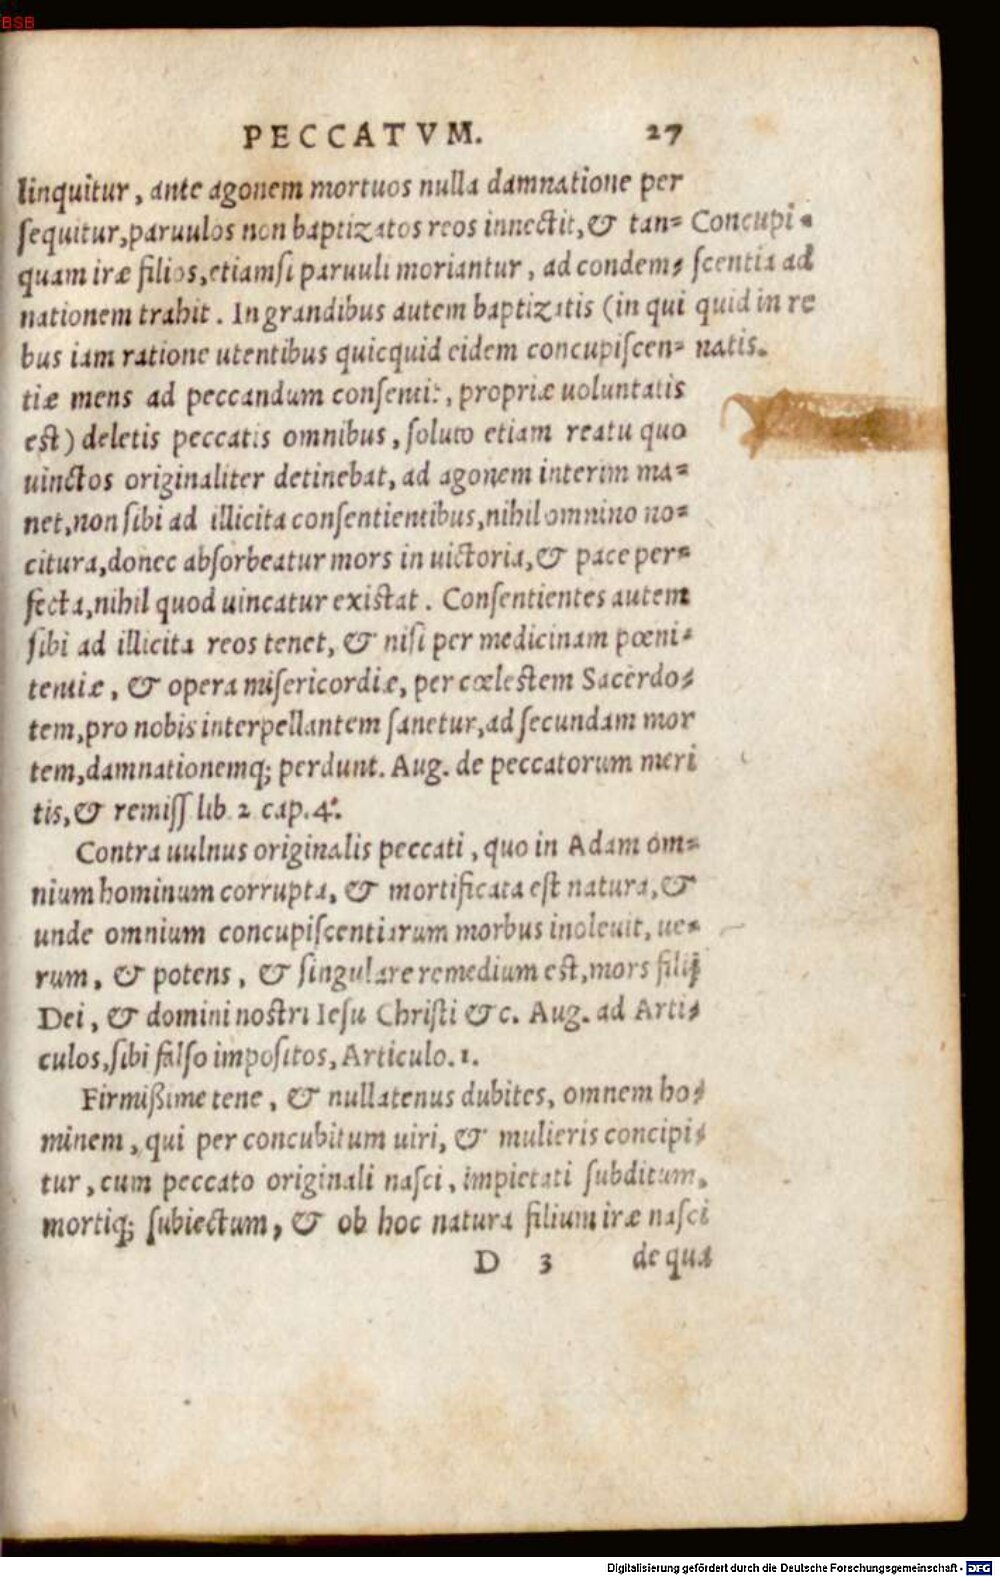 BSB
PECCATVM. 27
linquitur, ante agonem mortuos nulla damnatione per
sequitur, paruulos non baptizatos reos innectit, & tan=
quam iræ filios, etiamsi paruuli moriantur, ad condem=
nationem trahit. In grandibus autem baptizatis (in qui
bus iam ratione utentibus quicquid eidem concupiscen=
tiæ mens ad peccandum consentit, propriæ uoluntatis
est) deletis peccatis omnibus, soluto etiam reatu quo
uinctos originaliter detinebat, ad agonem interim ma=
net, non sibi ad illicita consentientibus, nihil omnino no=
citura, donec absorbeatur mors in uictoria, & pace per=
fecta, nihil quod uincatur existat. Consentientes autem
sibi ad illicita reos tenet, & nisi per medicinam pœni=
tentiæ, & opera misericordiæ, per cœlestem Sacerdo=
tem, pro nobis interpellantem sanetur, ad secundam mor
tem, damnationemq; perdunt. Aug. de peccatorum meri
tis, & remiss lib. 2 cap. 4.
Contra uulnus originalis peccati, quo in Adam om=
nium hominum corrupta, & mortificata est natura, &
unde omnium concupiscentiarum morbus inoleuit, ue=
rum, & potens, & singulare remedium est, mors filij
Dei, & domini nostri Iesu Christi &c. Aug. ad Arti=
culos, sibi falso impositos, Articulo. 1.
Firmißime tene, & nullatenus dubites, omnem ho=
minem, qui per concubitum uiri, & mulieris concipi=
tur, cum peccato originali nasci, impietati subditum,
mortiq; subiectum, & ob hoc natura filium iræ nasci
D 3 de qua
Concupi=
scentia ad
quid in re
natis.
Digitalisierung gefördert durch die Deutsche Forschungsgemeinschaft - DFG